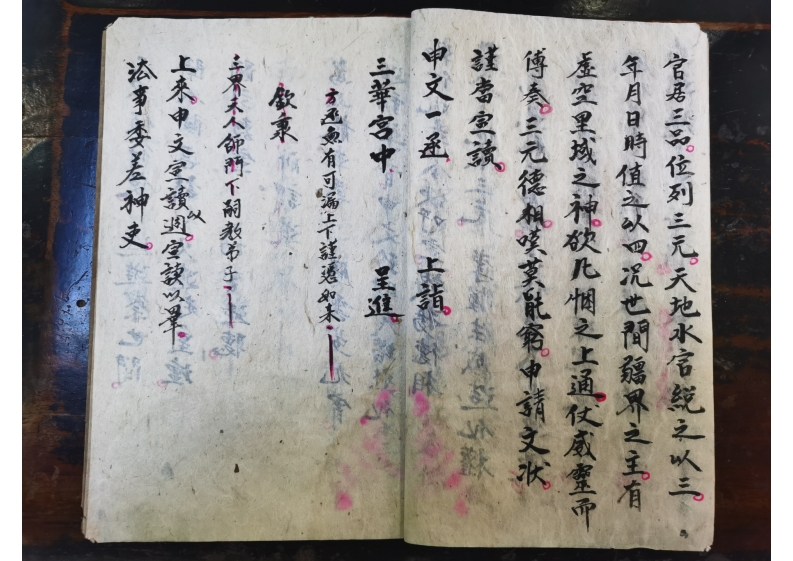 官居三品位列三元天地水官総之以三
年月日時值之以四况世間疆界之主有
虛空里域之神欲凡悃之上通仗威靈而
傅奏三元德相嘆莫能窮申請文状
謹當宣讀
申文一通 上詣
三華宮中 呈進
方函魚有可漏上下謹憑如未
欽稟
三界未人師門下嗣教弟子
上來申文宣讀以週宣讀以畢
法事委差神吏